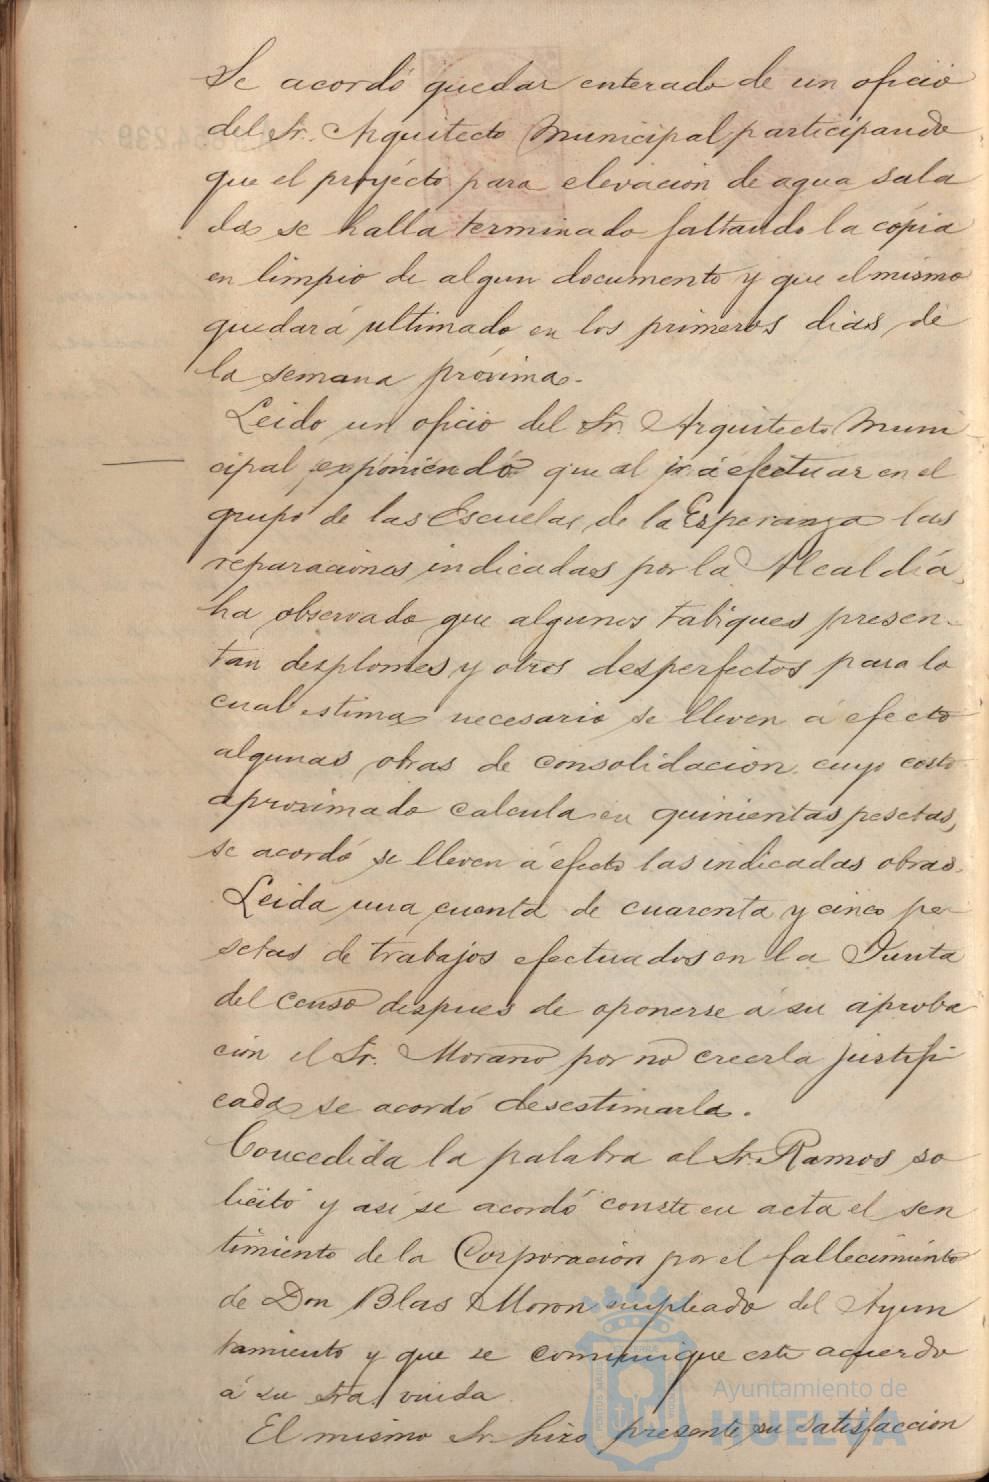 Se acordó quedar enterado de un oficio
del Sr. Arquitecto Municipal participando
que el proyécto para elevacion de agua sala
da se halla terminado faltando la cópia
en limpio de algun documento y que el mismo
quedará ultimado en los primeros dias de
la semana próxima.
Leido un oficio del Sr. Arquitecto Muni
cipal exponiendo que al ir á efectuar en el
grupo de las Escuelas de la Esperanza las
reparaciones indicadas por la Alcaldía,
ha observado que algunos tabiques presen-
tan desplomes y otros desperfectos para lo
cual estima necesario se lleven á efecto
algunas obras de consolidacion cuyo costo
aproximado calcula en quinientas pesetas,
se acordó se lleven á efecto las indicadas obras.
Leida una cuenta de cuarenta y cinco pe-
setas de trabajos efectuados en la Junta
del Censo despues de oponerse á su aproba
cion el Sr. Morano por no creerla justifi
cada se acordó desestimarla.
Concedida la palabra al Sr. Ramos so
licitó y asi se acordó conste en acta el sen
timiento de la Corporacion por el fallecimiento
de Don Blas Moron empleado del Ayun
tamiento y que se comunique este acuerdo
á su Sra. viuda
El mismo Sr. hizo presente su satisfaccion
Ayuntamiento de
HUELVA